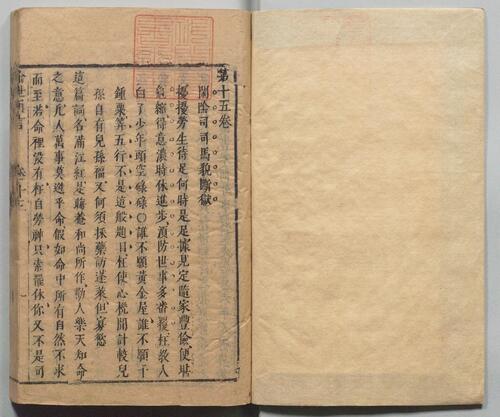 第十五卷
鬧陰司司馬貌斷獄
擾擾勞生待足何時是足據見定隨家豐儉便堪
龜縮得意濃時休進步須防世事多番覆枉教人
白了少年頭空碌碌○誰不願黃金屋誰不願千
鍾粟筭五行不是這般題目枉使心機閒計較兒
孫自有兒孫福又何須採藥訪蓬萊但寡慾
這篇詞名滿江紅是晦菴和尚所作勸人樂天知命
之意凡人萬事莫逃乎命假如命中所有自然不求
而至若命裡沒有枉自勞神只索罷休你又不是司